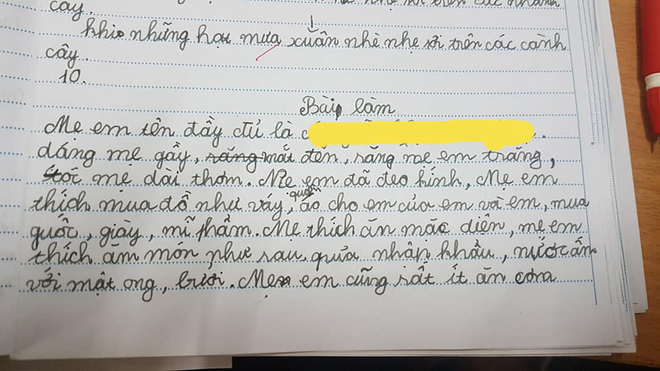 cây.
khio những hạt mưa xuân nhè nhẹ rơi trên các cành
cây.
10.
Bài làm
Mẹ em tên đầy đủ là
dáng mẹ gầy, mắt đen, răng mẹ em trắng,
tóc mẹ dài thơm. Mẹ em đã đeo kính, Mẹ em
thích mua đồ như váy, quần áo cho em của em và em, mua
guốc, giày, mĩ phẩm. Mẹ thích ăn mặc diện, mẹ em
thích ăn món như sau quửa nhập khẩu, nước ấm
với mật ong, bưởi. Mẹ em cũng rất ít ăn cơm